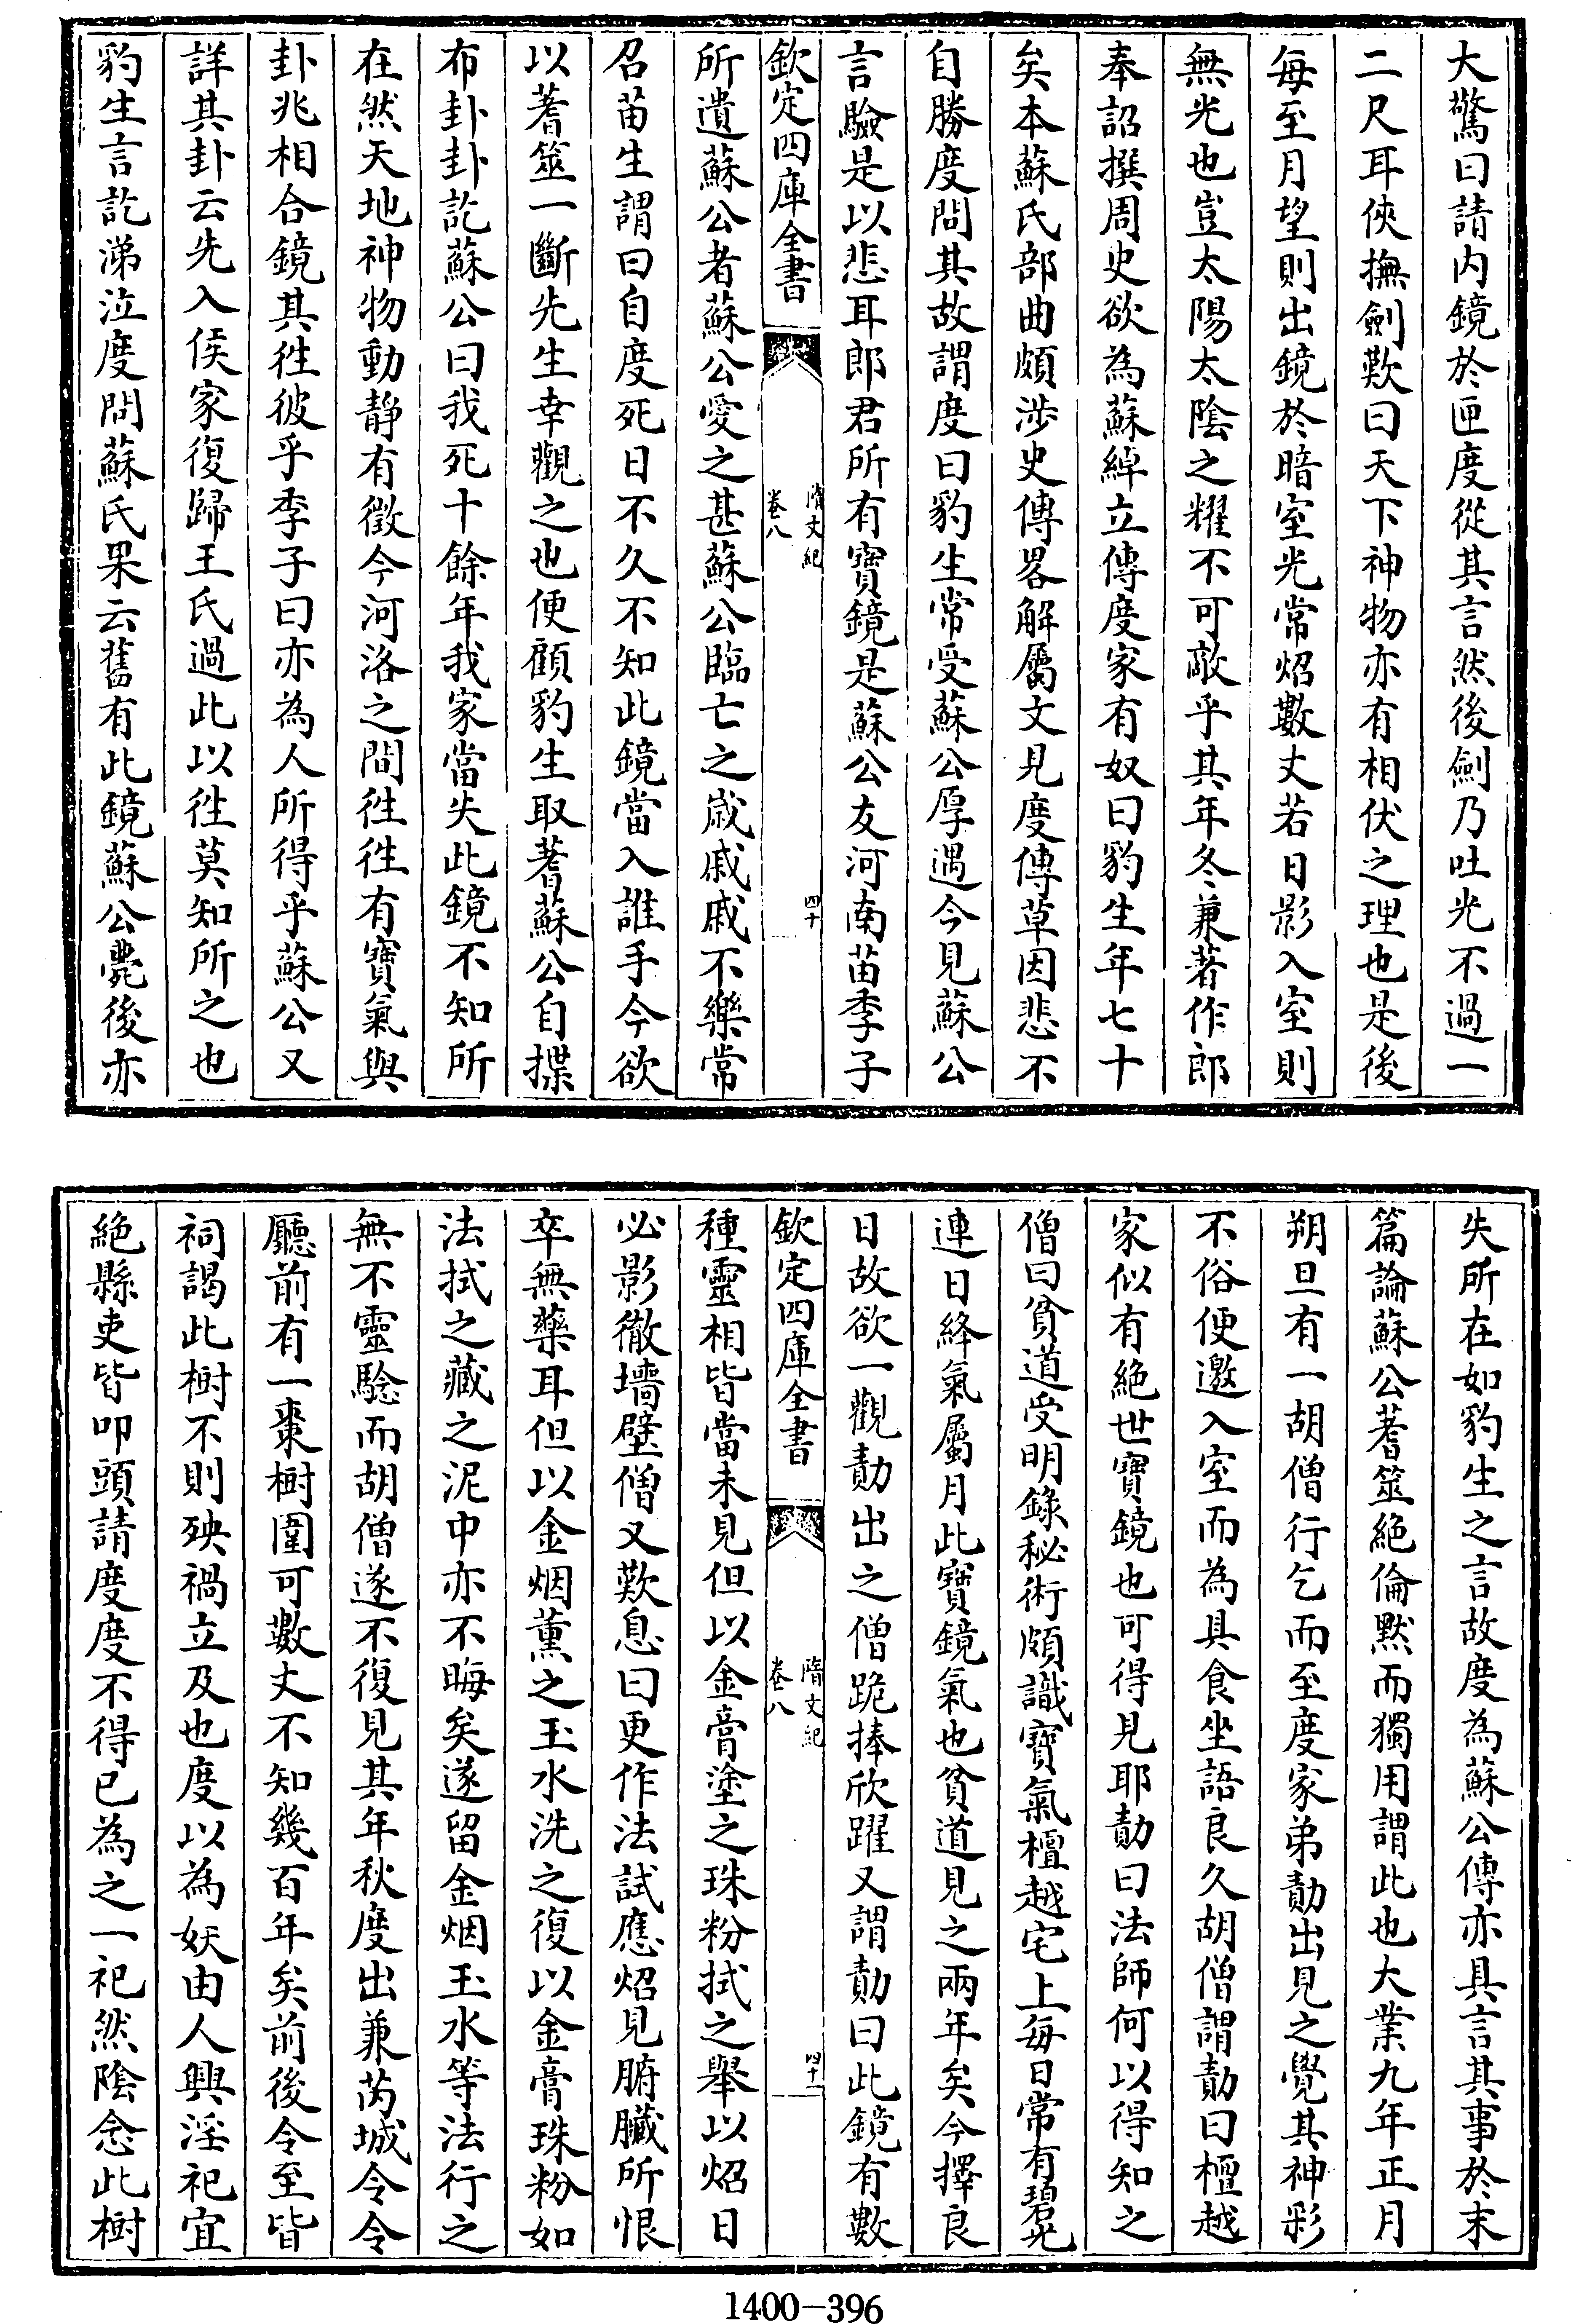 大驚曰請内鏡於匣度從其言然後劍乃吐光不過一
二尺耳俠撫劍歎曰天下神物亦有相伏之理也是後
每至月望則出鏡於暗室光常炤數丈若日影入室則
無光也豈太陽太陰之耀不可敵乎其年冬兼著作郎
奉詔撰周史欲為蘇綽立傳度家有奴曰豹生年七十
矣本蘇氏部曲頗涉史傳畧解屬文見度傳草因悲不
自勝度問其故謂度曰豹生常受蘇公厚遇今見蘇公
言驗是以悲耳郎君所有寶鏡是蘇公友河南苗季子
欽定四庫全書
隋文紀
卷八
四十
所遺蘇公者蘇公愛之甚蘇公臨亡之歲戚戚不樂常
召苗生謂曰自度死日不久不知此鏡當入誰手今欲
以蓍筮一斷先生幸觀之也便顧豹生取蓍蘇公自揲
布卦卦訖蘇公曰我死十餘年我家當失此鏡不知所
在然天地神物動静有徵今河洛之間徃徃有寶氣與
卦兆相合鏡其徃彼乎季子曰亦為人所得乎蘇公又
詳其卦云先入侯家復歸王氏過此以徃莫知所之也
豹生言訖涕泣度問蘇氏果云舊有此鏡蘇公薨後亦
失所在如豹生之言故度為蘇公傳亦具言其事於末
篇論蘇公蓍筮絶倫默而獨用謂此也大業九年正月
朔旦有一胡僧行乞而至度家弟勣出見之覺其神彩
不俗便邀入室而為具食坐語良久胡僧謂勣曰檀越
家似有絶世寶鏡也可得見耶勣曰法師何以得知之
僧曰貧道受明錄秘術頗識寶氣檀越宅上每日常有碧光
連日絳氣屬月此寶鏡氣也貧道見之兩年矣今擇良
日故欲一觀勣出之僧跪捧欣躍又謂勣曰此鏡有數
欽定四庫全書
隋文紀
卷八
四十一
種靈相皆當未見但以金膏塗之珠粉拭之舉以炤日
必影徹墻壁僧又歎息曰更作法試應炤見腑臟所恨
卒無藥耳但以金烟薰之玉水洗之復以金膏珠粉如
法拭之藏之泥中亦不晦矣遂留金烟玉水等法行之
無不靈驗而胡僧遂不復見其年秋度出兼芮城令令
廳前有一棗樹圍可數丈不知幾百年矣前後令至皆
祠謁此樹不則殃禍立及也度以為妖由人興淫祀宜
絶縣吏皆叩頭請度度不得已為之一祀然陰念此樹
1400-396